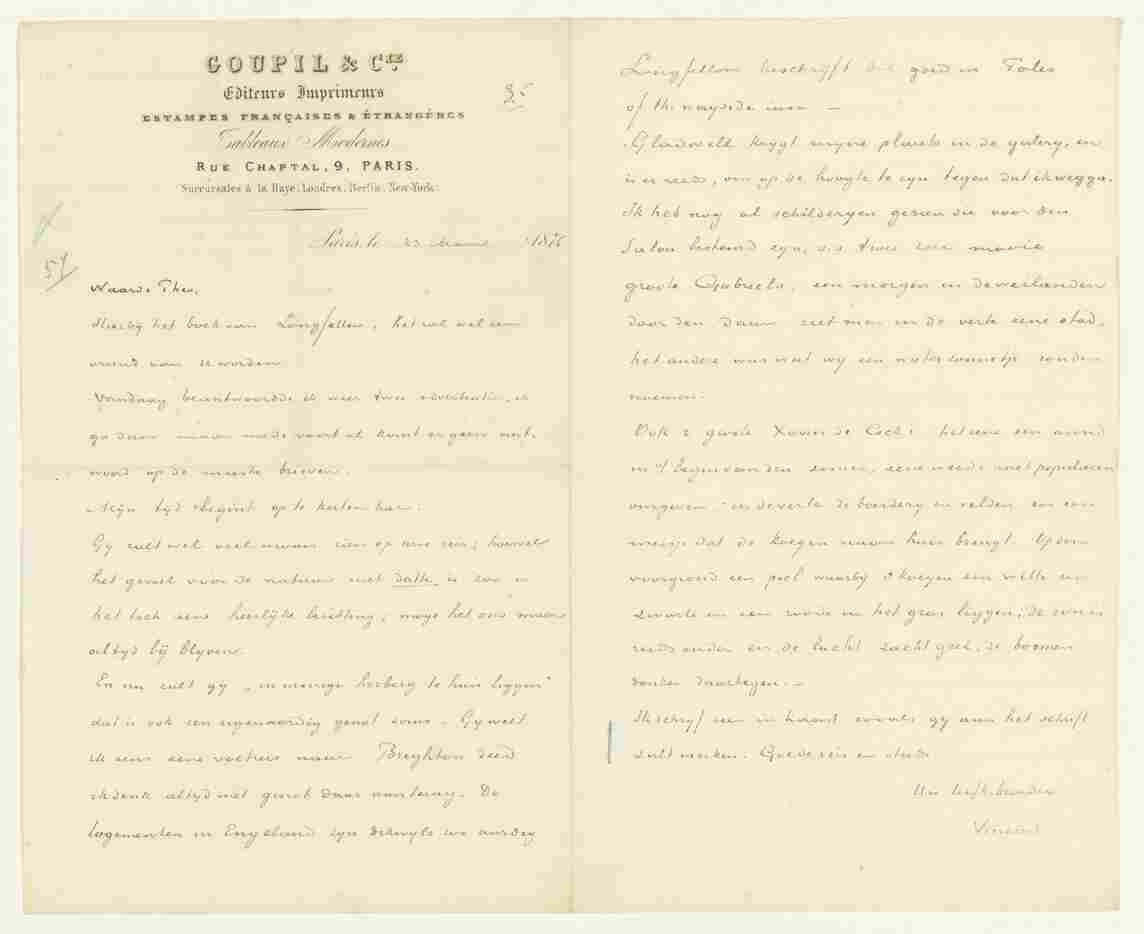 GOUPIL & Cie
Editeurs Imprimeurs
ESTAMPES FRANÇAISES & ÉTRANGÈRES
Tableaux Modernes
RUE CHAPTAL, 9, PARIS.
Succursales à la Haye, Londres, Berlin, New-York.
Paris, le 23 Maart 1876
57
Waarde Theo,
Hierbij het boek van Longfellow, het zal wel een
vriend van U worden
Vandaag beantwoordde ik weer twee advertentie, ik
ga daar maar mede voort al komt er geen ant-
woord op de meeste brieven.
Mijn tijd begint op te korten hier.
Gy zult wel veel moois zien op uwe reis; hoewel
het gevoel voor de natuur niet dath is zoo is
het toch eene heerlijke bezitting, moge het ons maar
altyd bij blyven.
En nu zult gy „in menige herberg te huis liggen"
dat is ook een eigenaardig genot soms. Gy weet
ik eens eene voetreis naar Breyhton deed
ik denk altyd met genot daar aan terug. De
logementen in Engeland zyn dikwyls zoo aardig
Longfellow beschrijft dat goed in Tales
of the wayside inn —
Gladwell krygt myne plaats in de galery, en
is er reeds, om op de hoogte te zyn tegen dat ik wegga.
Ik heb nog al schilderyen gezien die voor den
Salon bestemd zyn, o.a. twee zeer mooie
groote Gabriels, een morgen in de weilanden
door den dauw ziet men in de verte eene stad.
het andere was wat wy een waterzonnetje zouden
noemen.
Ook 2 groote Xavier de Cock: het eene een avond
in 't begin van den zomer, eene weide met populieren
omgeven in de verte de boerdery en velden en een
meisje dat de koeyen naar huis brengt. Op den
voorgrond een poel waarby 3 koeyen een witte een
zwarte en een roode in het gras liggen; de zon is
reeds onder en de lucht zacht geel, de boomen
donker daartegen. —
Ik schryf zeer in haast zooals gy aan het schrift
zult merken. Goede reis en steeds
Uw liefh. broeder
Vincent